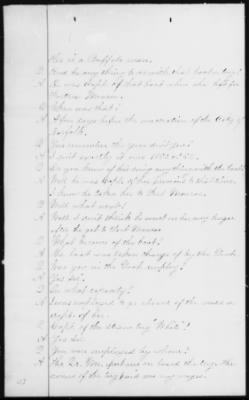 He is a Buffalo man.
Q Had he any thing to do with that boat or tug?
A He was Capt of that boat when she left for
Fortress Monroe.
Q When was that?
A A few days before the evacuation of the City of
Norfolk.
Q You remember the year don't you?
A I don't exactly it was 1862 or
Q Do you know of his doing anything with the boat?
A Well he was Capt of her
I know he taken her to Fort Monroe.
Q Well what next?
A Well I don't think he went on her any longer
after he got to Fort Monroe
Q What became of the boat?
A The boat was taken charge of by the Govt.
Q Was you in the Govt employ?
A Yes Sir.
Q In what capacity?
A I was employed to as
Capt of her.
Q Capt of the steam tug "White"?
A Yes Sir.
Q You was employed by whom?
A The Qr. Mr. on board the tug. The
owners of the tug paid me my wages.